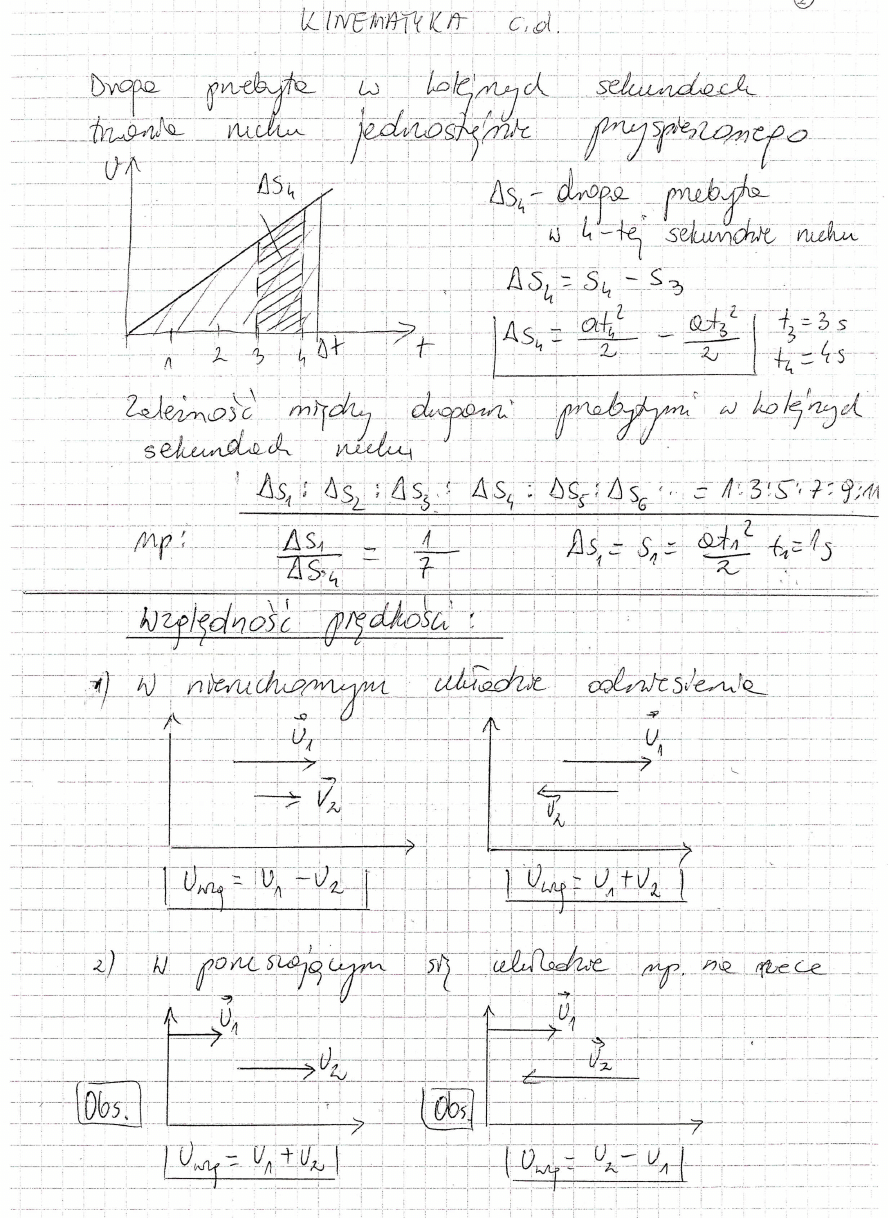 2
KINEMATYKA c.d.
Droga przebyta w kolejnych sekundach
trwania ruchu jednostajnie przyspieszonego
υ
ΔS₄
1 2 3 4 Δt t
ΔS₄ - droga przebyta
w 4-tej sekundzie ruchu
ΔS₄ = S₄ - S₃
ΔS₄ = at₄²/2 - at₃²/2 t₃ = 3s t₄ = 4s
Zależność między drogami przebytymi w kolejnych
sekundach ruchu
ΔS₁ : ΔS₂ : ΔS₃ : ΔS₄ : ΔS₅ : ΔS₆ .. = 1:3:5:7:9:11
np: ΔS₁/ΔS₄ = 1/7 ΔS₁ = S₁ = at₁²/2 t₁=1s
Względność prędkości:
1) W nieruchomym układzie odniesienia
υ₁ υ₁
V₂ V₂
υwzg = υ₁ - υ₂ υwzg = υ₁ + υ₂
2) W poruszającym się układzie np. na rzece
υ₁ υ₁
υ₂ υ₂
Obs. Obs.
υwzg = υ₁ + υ₂ υwzg = υ₂ - υ₁